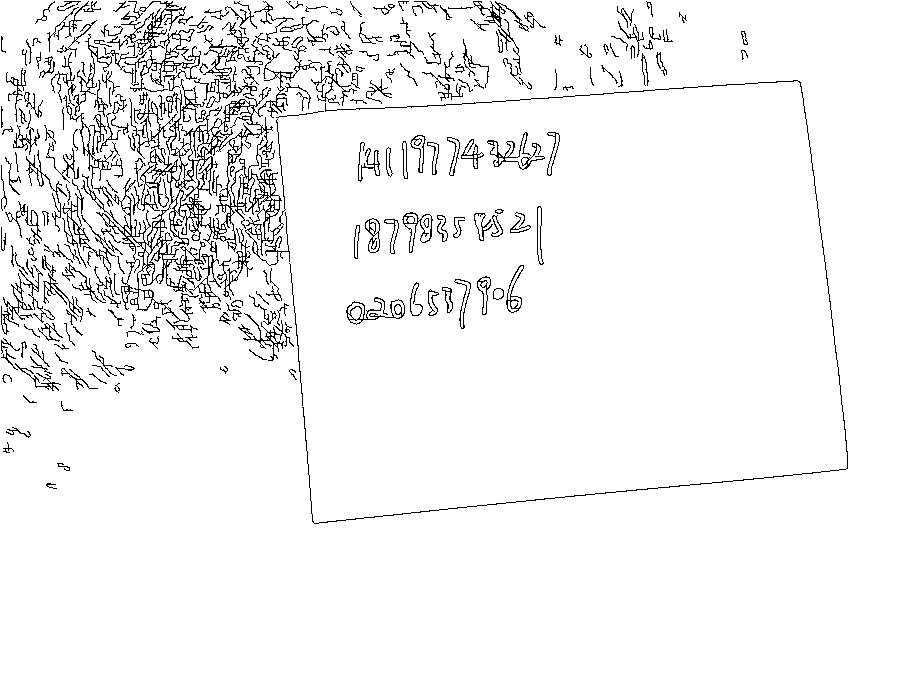 1411977432627
18798358521
0206537906